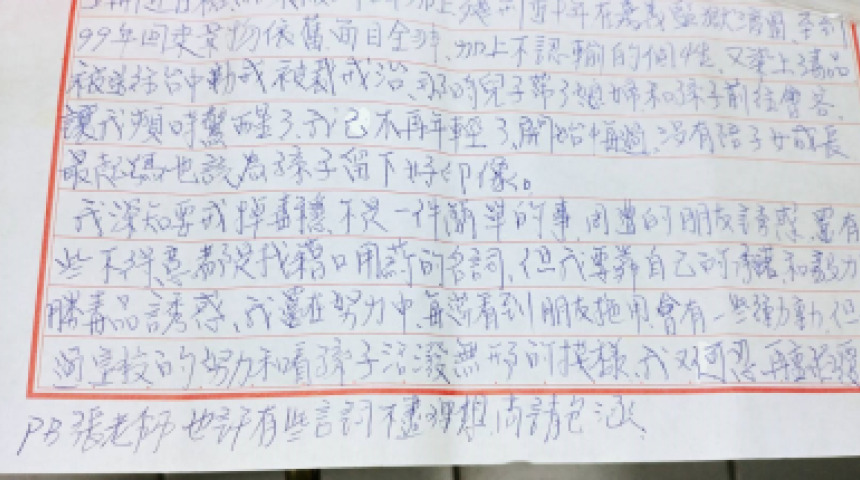 在嘉義監獄
99年回來景物依舊、面目全非、加上不認輸的個性、又染上毒品
被送往台中勒戒被裁戒治、那時兒子帶了媳婦和孫子前往會客、
讓我頓時驚醒了、我已不再年輕了、開始悔過、沒有陪子女成長
最起碼也該為孫子留下好印像。
我深知要戒掉毒癮不是一件簡單的事、周遭的朋友誘惑、還有
些不得意都是我藉口用藥的名詞、但我要靠自己的承諾和毅力
勝毒品誘惑、我還在努力中、每當看到朋友施用、會有一些衝動、但
的努力和看孫子活潑無邪的模樣、我又何忍再
PS張老師也許有些言詞不盡理想、尚請包涵、